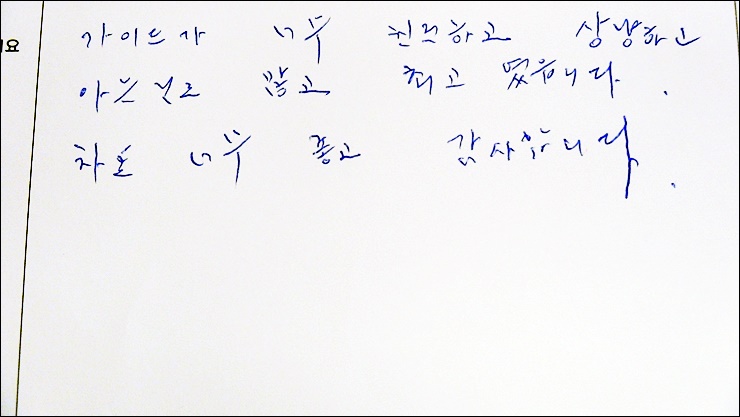 가이드가 너무 친절하고 상냥하고
아는것도 많고 최고 였습니다.
차도 너무 좋고 감사합니다.
요